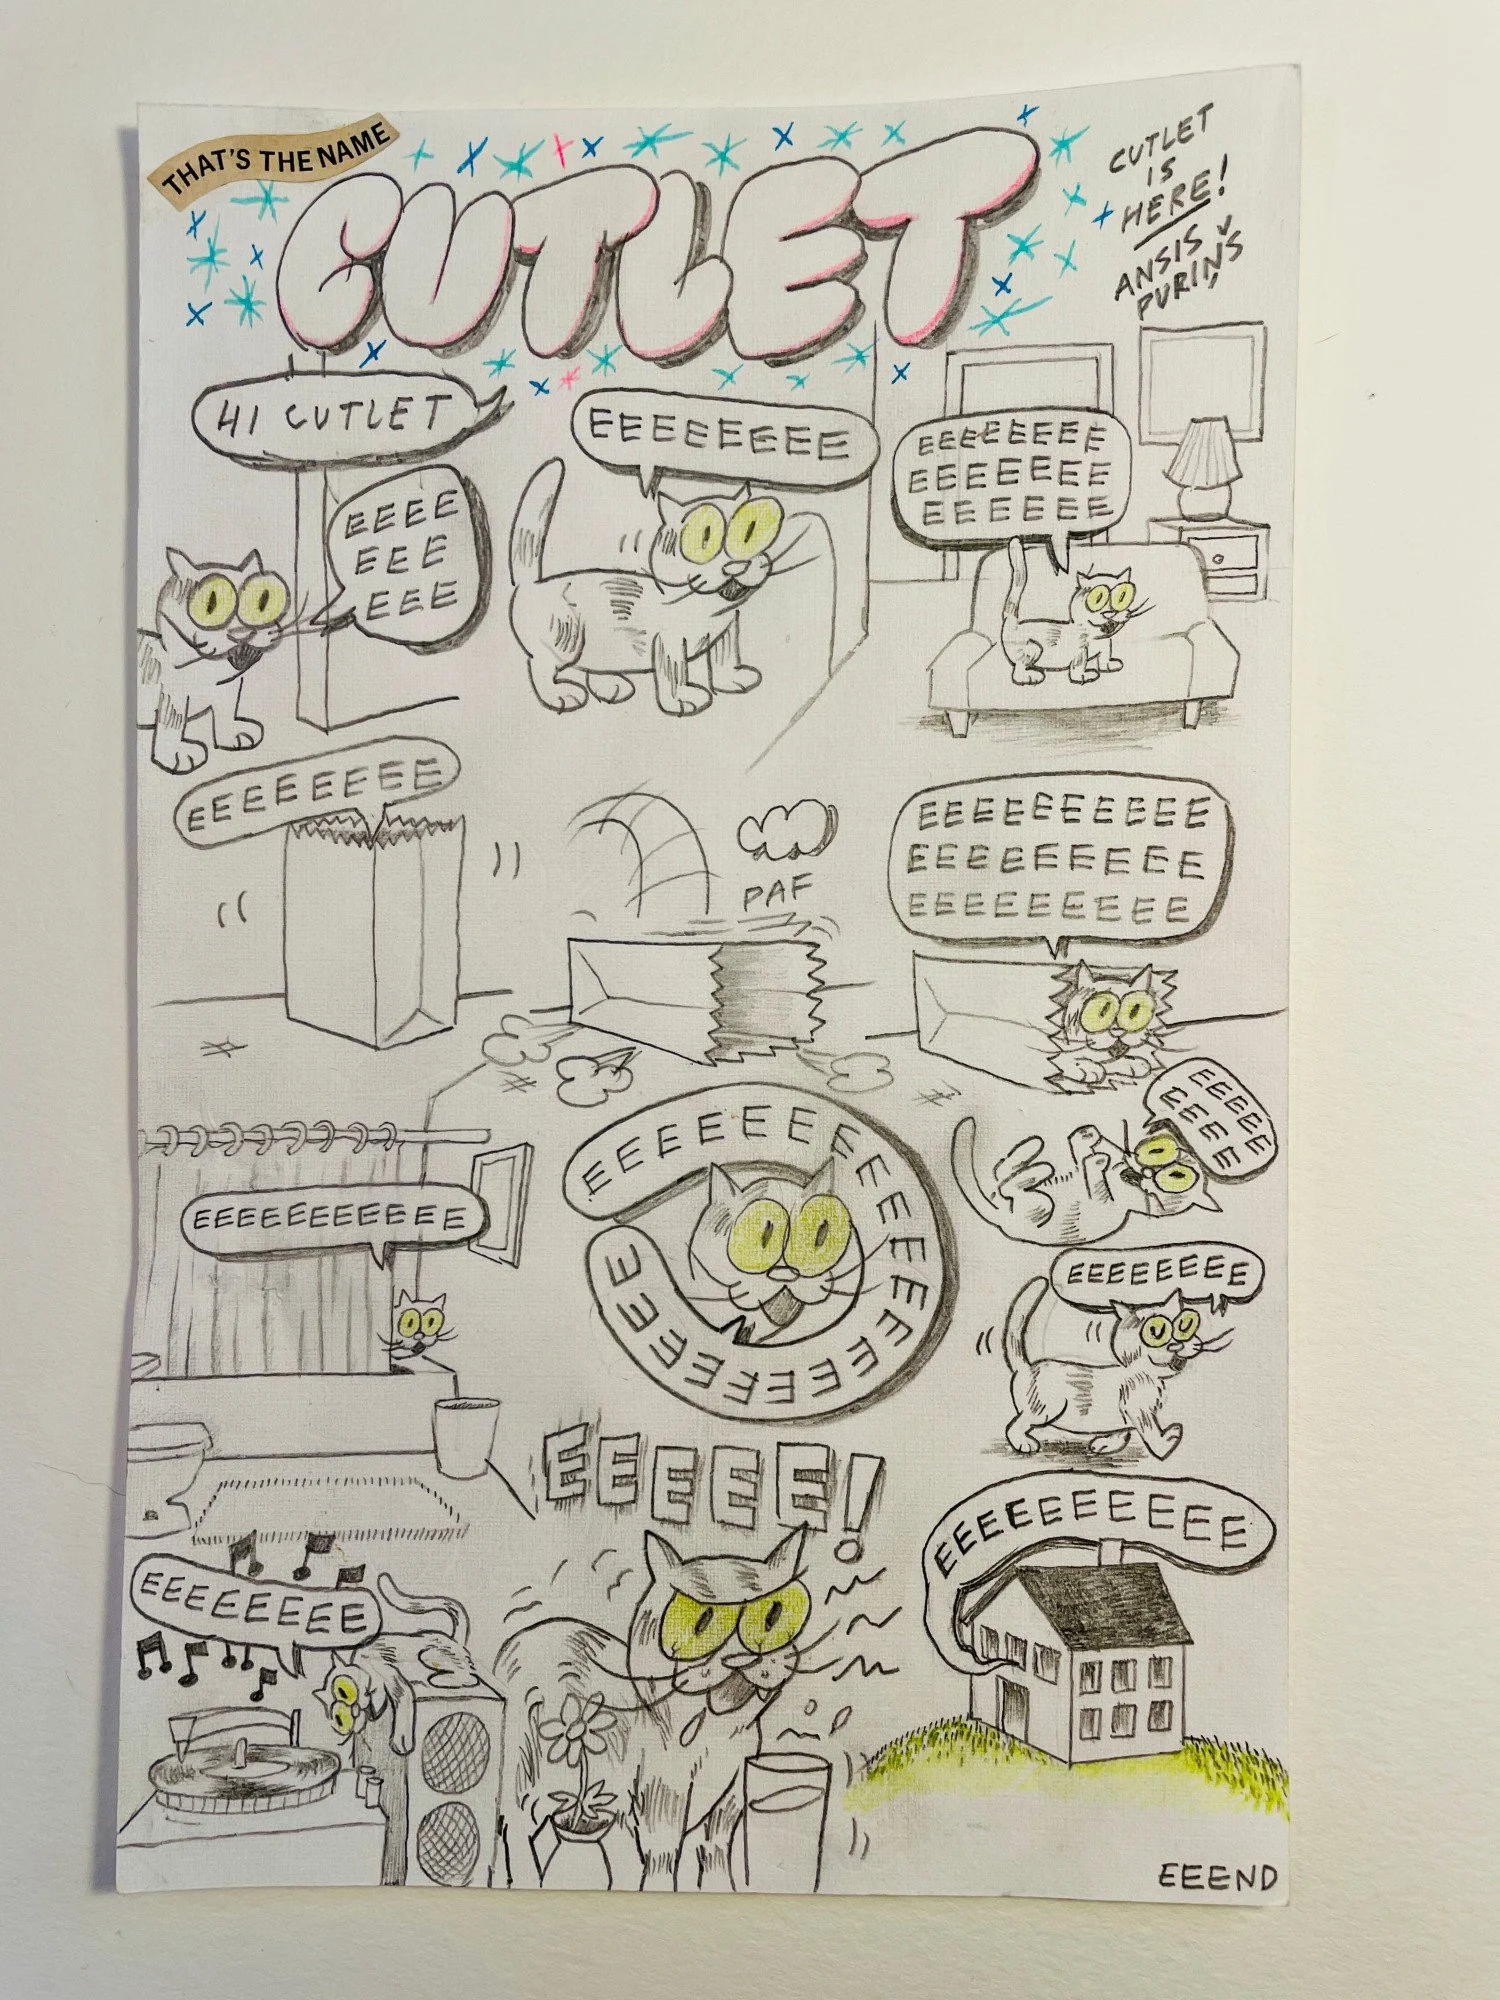 THAT'S THE NAME
CUTLET
CUTLET
IS
HERE!
ANSIS
PURIŅŠ
HI CUTLET
EEEE
EEE
EEE
EEEEEEEE
EEEEEEEE
EEEEEEE
EEEEEE
EEEEEEEEE
PAF
EEEEEEEEEE
EEEEEEEEE
EEEEEEEEE
EEEEEEEEEEE
EEEEEEEEEEEEEEEEEEEEEEEEEE
EEEEE
EEEE
EEEEEEEE
EEEEE!
EEEEEEEE
EEEEEEEEEE
EEEND